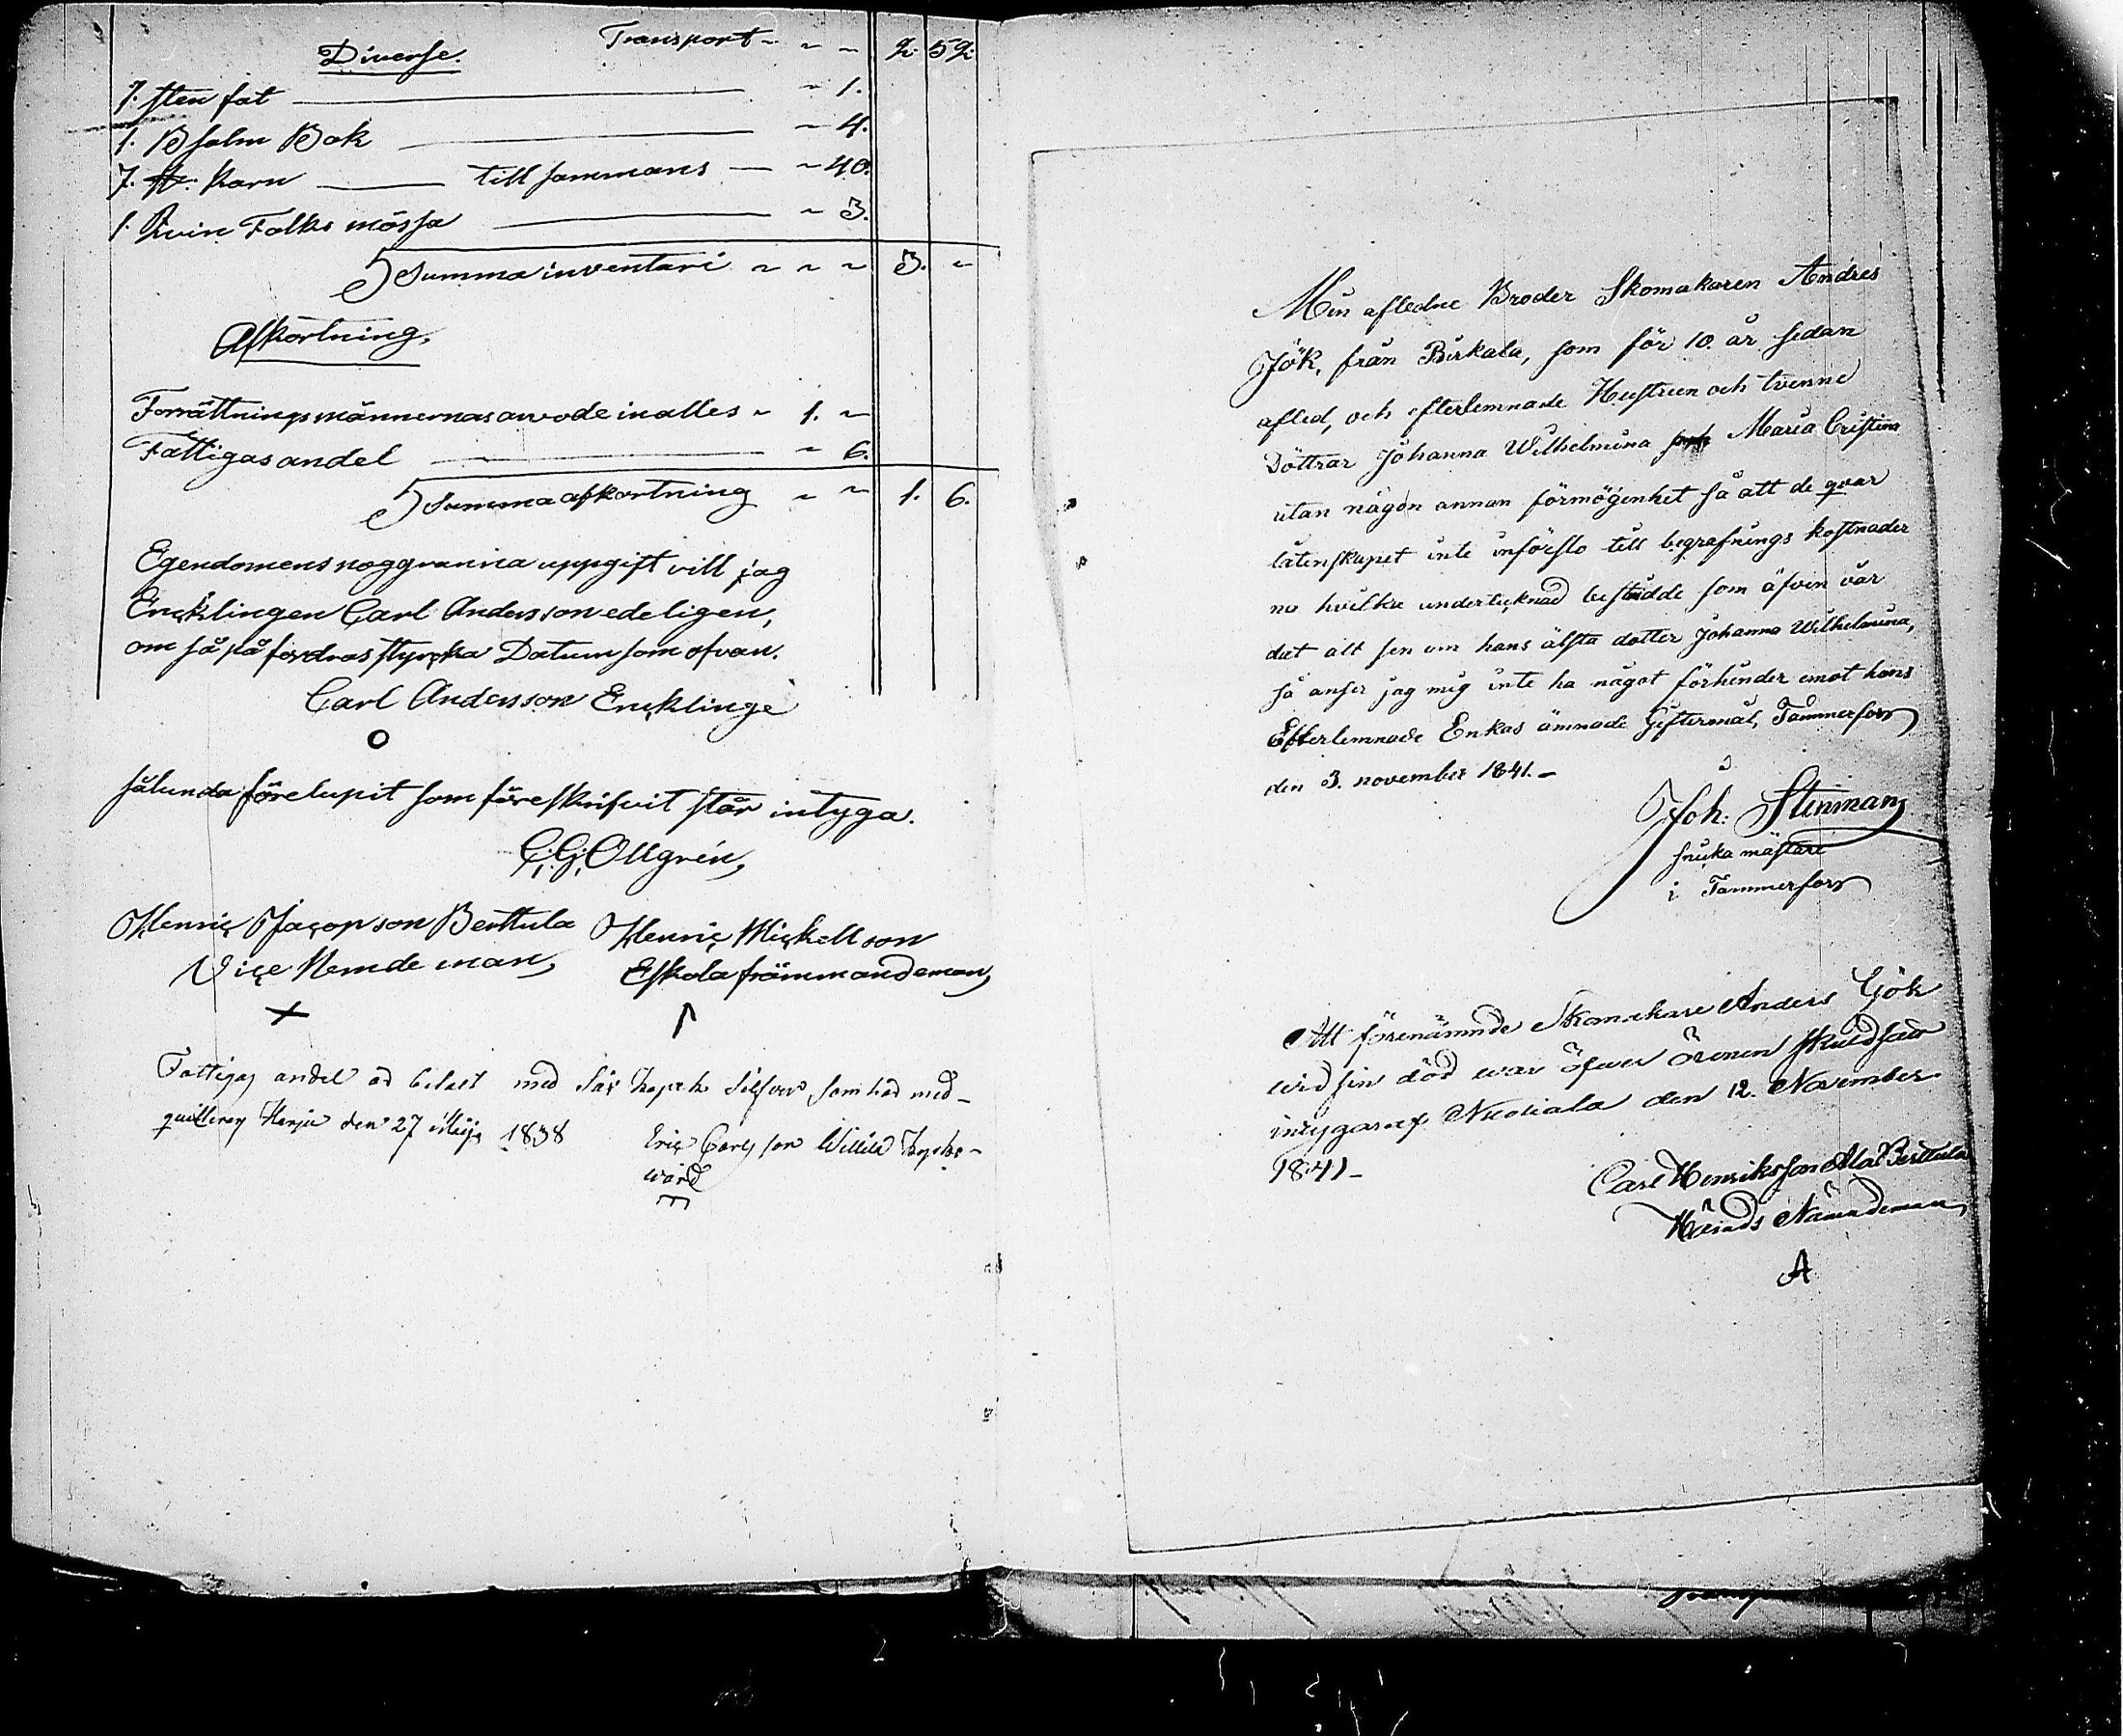 Diverse. Transport - - - 2. 52.
7. sten fat - 1.
1. Psalm Bok - 4.
7. st: Karn till sammans - 40.
1. Kvin Folks mössa - 3.
Summa inventari - - - 3. -
Afkortning.
Forrättningsmännernas arvode in alles - 1. -
Fattigas andel - 6.
Summa afkortning - - 1. 6.
Egendomens noggranna uppgift vill jag
Encklingen Carl Andersson edeligen,
om så påfordras styrcka Datum som ofvan.
Carl Andersson Encklinge
O
sålunda förelupit som föreskrifvit står intyga.
C. G. Ollgrén,
Henric Jacopson Berttula Henric Mickellson
Vice Nemde man, Eskola främmandeman,
Fattigas andel ad belast med Säx kopek Silfver, som hod med-
quitteras Harju den 27 Maij 1838 Eric Carlsson Willilä kyrko-
wärd
Min afledne Broder Skomakaren Andres
Jök, från Birkala, som för 10. år sedan
afled, och efterlemnade Hustrun och tvenne
Döttrar Johanna Wilhelmina Maria Cristina
utan någon annan förmögenhet så att de qvar
låtenskapet inte införslo till begrafnings kostnader
na hvilka undertecknad bestridde som äfven vår
dat alt sen om hans älsta dotter Johanna Wilhelmina,
så anser jag mig inte ha något förhinder emot hans
Efterlemnade Enkas ämnade Giftermål, Tammerfors
den 3. november 1841. -
Joh: Stenman
snicka mästare
i Tammerfors
Att förenämnde Skomakare Anders Gök
wid sin död war öfwer öronen skuldsatt
intygas af Nuoliala den 12. November
1841 -
Carl Henriksson Ala Perttula
Härads Nämndeman,
A